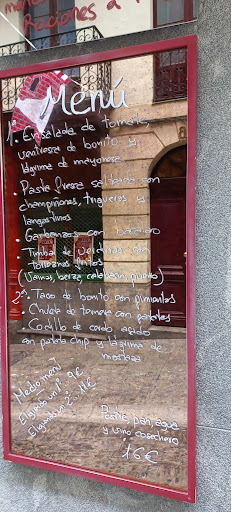 Raciones a
Menú
1. Ensalada de tomate,
ventresca de bonito y
lágrima de mayonesa
- Pasta fresca salteada con
champiñones, trigueros y
langostinos
- Garbanzos con
- Timbal de verduras con
(Vainas, berza, calabacín, puerro)
2º. Taco de bonito con pimientos
- Chuleta de ternera con patatas
- Codillo de cerdo asado
con patata chip y lágrima de
mostaza
Medio menú
Elegido un 1º 9€
Elegido un 2º 11€
Postre, pan, agua
y vino cosechero
16€